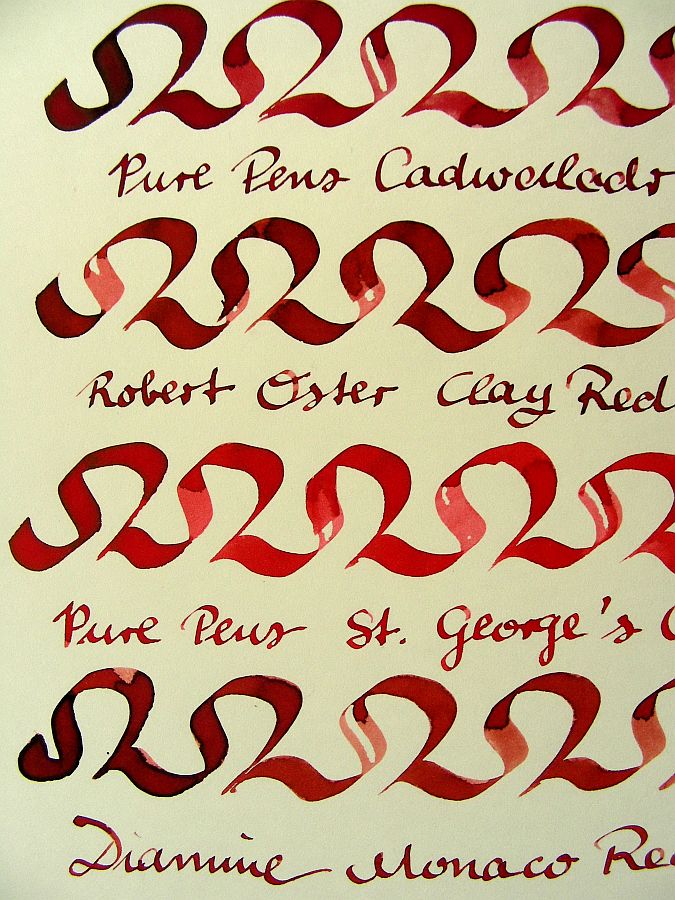 Pure Pens Cadwalladr
Robert Oster Clay Red
Pure Pens St. George's
Diamine Monaco Re